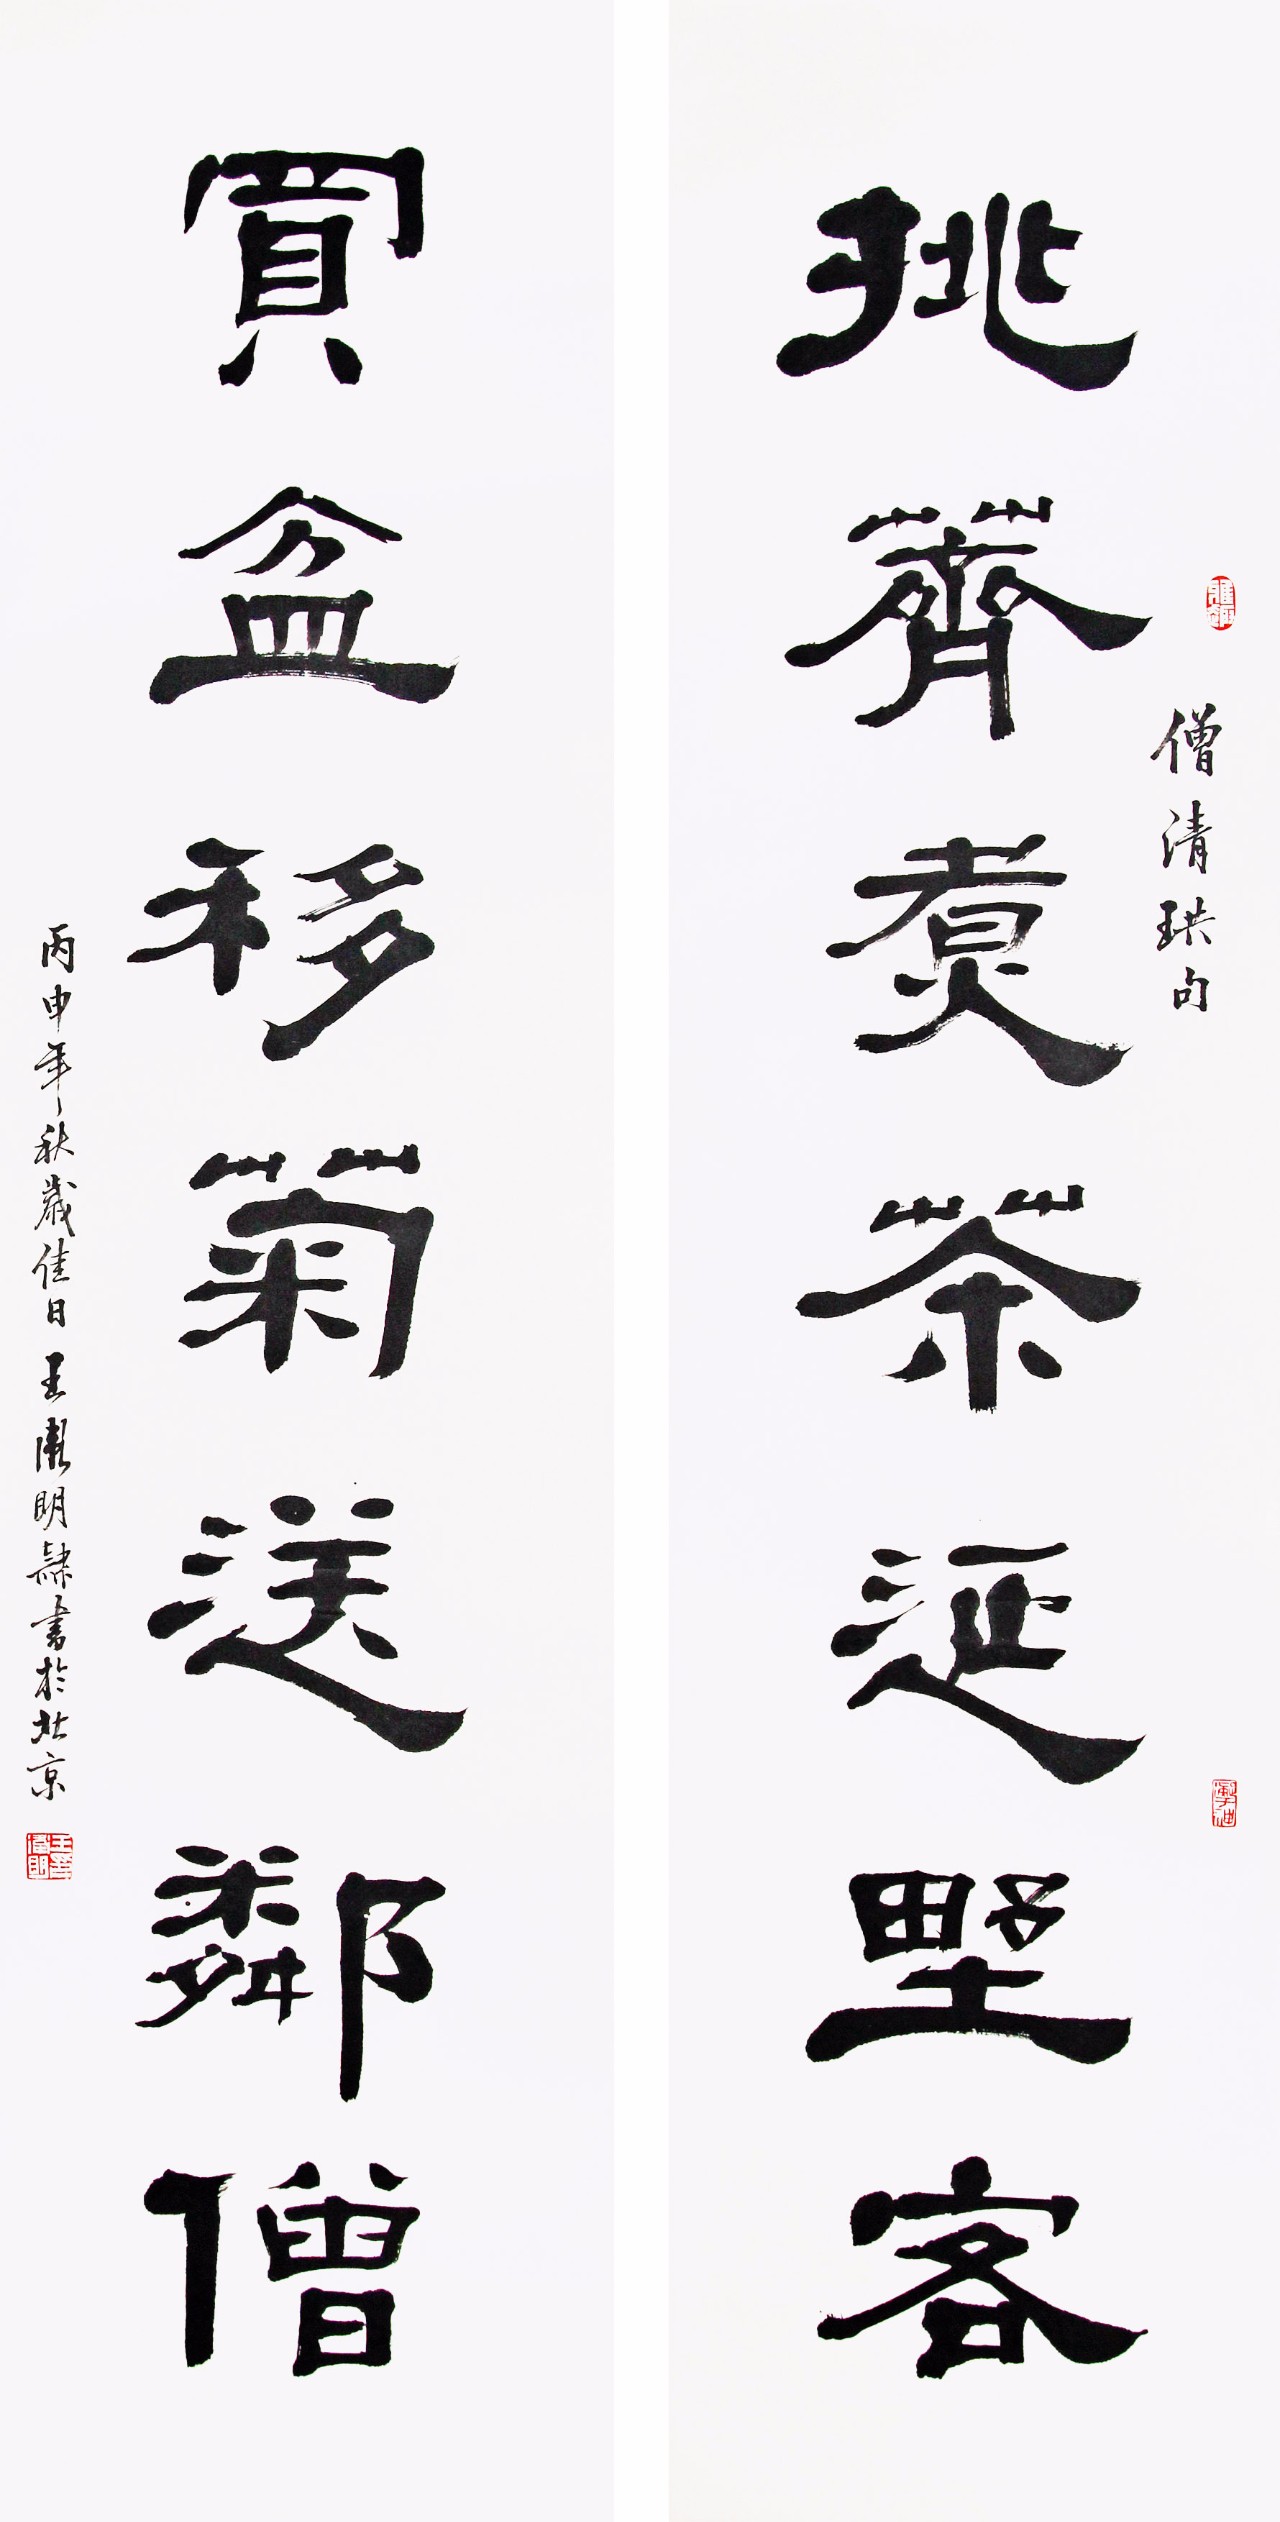 僧清珙句
挑薺煮茶延野客
買盆移菊送鄰僧
丙申年秋歲佳日王明隸書於北京